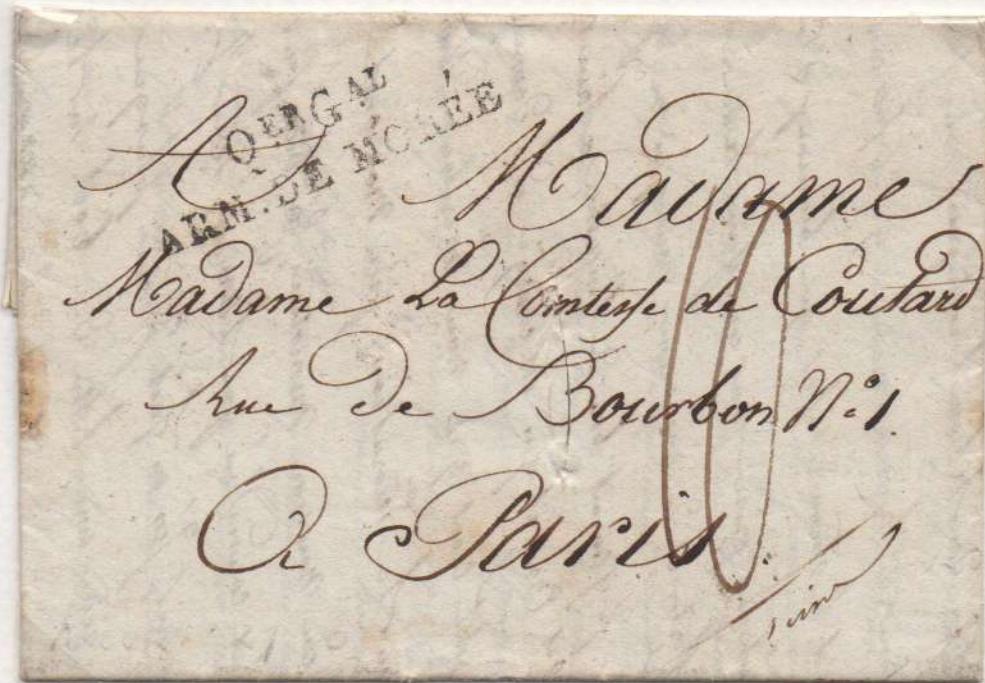 QER GAL
ARM. DE MORÉE
A Madame
Madame La Comtesse de Coutard
Rue de Bourbon N° 1.
A Paris
10